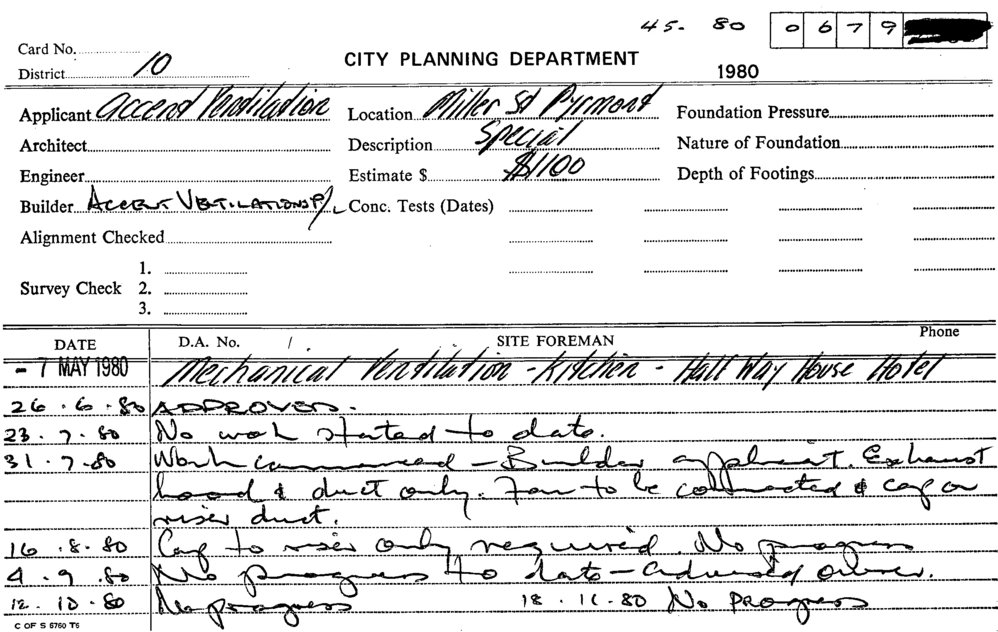 45. 80 0 6 7 9
Card No.
District 10
CITY PLANNING DEPARTMENT
1980
Applicant Accent Ventilation Location Miller St Pyrmont Foundation Pressure
Architect Description Special Nature of Foundation
Engineer Estimate $ $1100 Depth of Footings
Builder ACCENT VENTILATIONS P/L Conc. Tests (Dates)
Alignment Checked
1.
Survey Check 2.
3.
DATE D.A. No. / SITE FOREMAN Phone
- 7 MAY 1980 Mechanical Ventilation - Kitchen - Half Way House Hotel
26.6.80 APPROVED.
23.7.80 No work started to date.
31.7.80 Work commenced - Builder applicant. Exhaust
hood & duct only. Fan to be connected & cap on
riser duct.
16.8.80 Cap to riser only required. No progress
4.9.80 No progress to date - advised owner.
12.10.80 No progress 18.11.80 No PROgress
C OF S 6760 T6